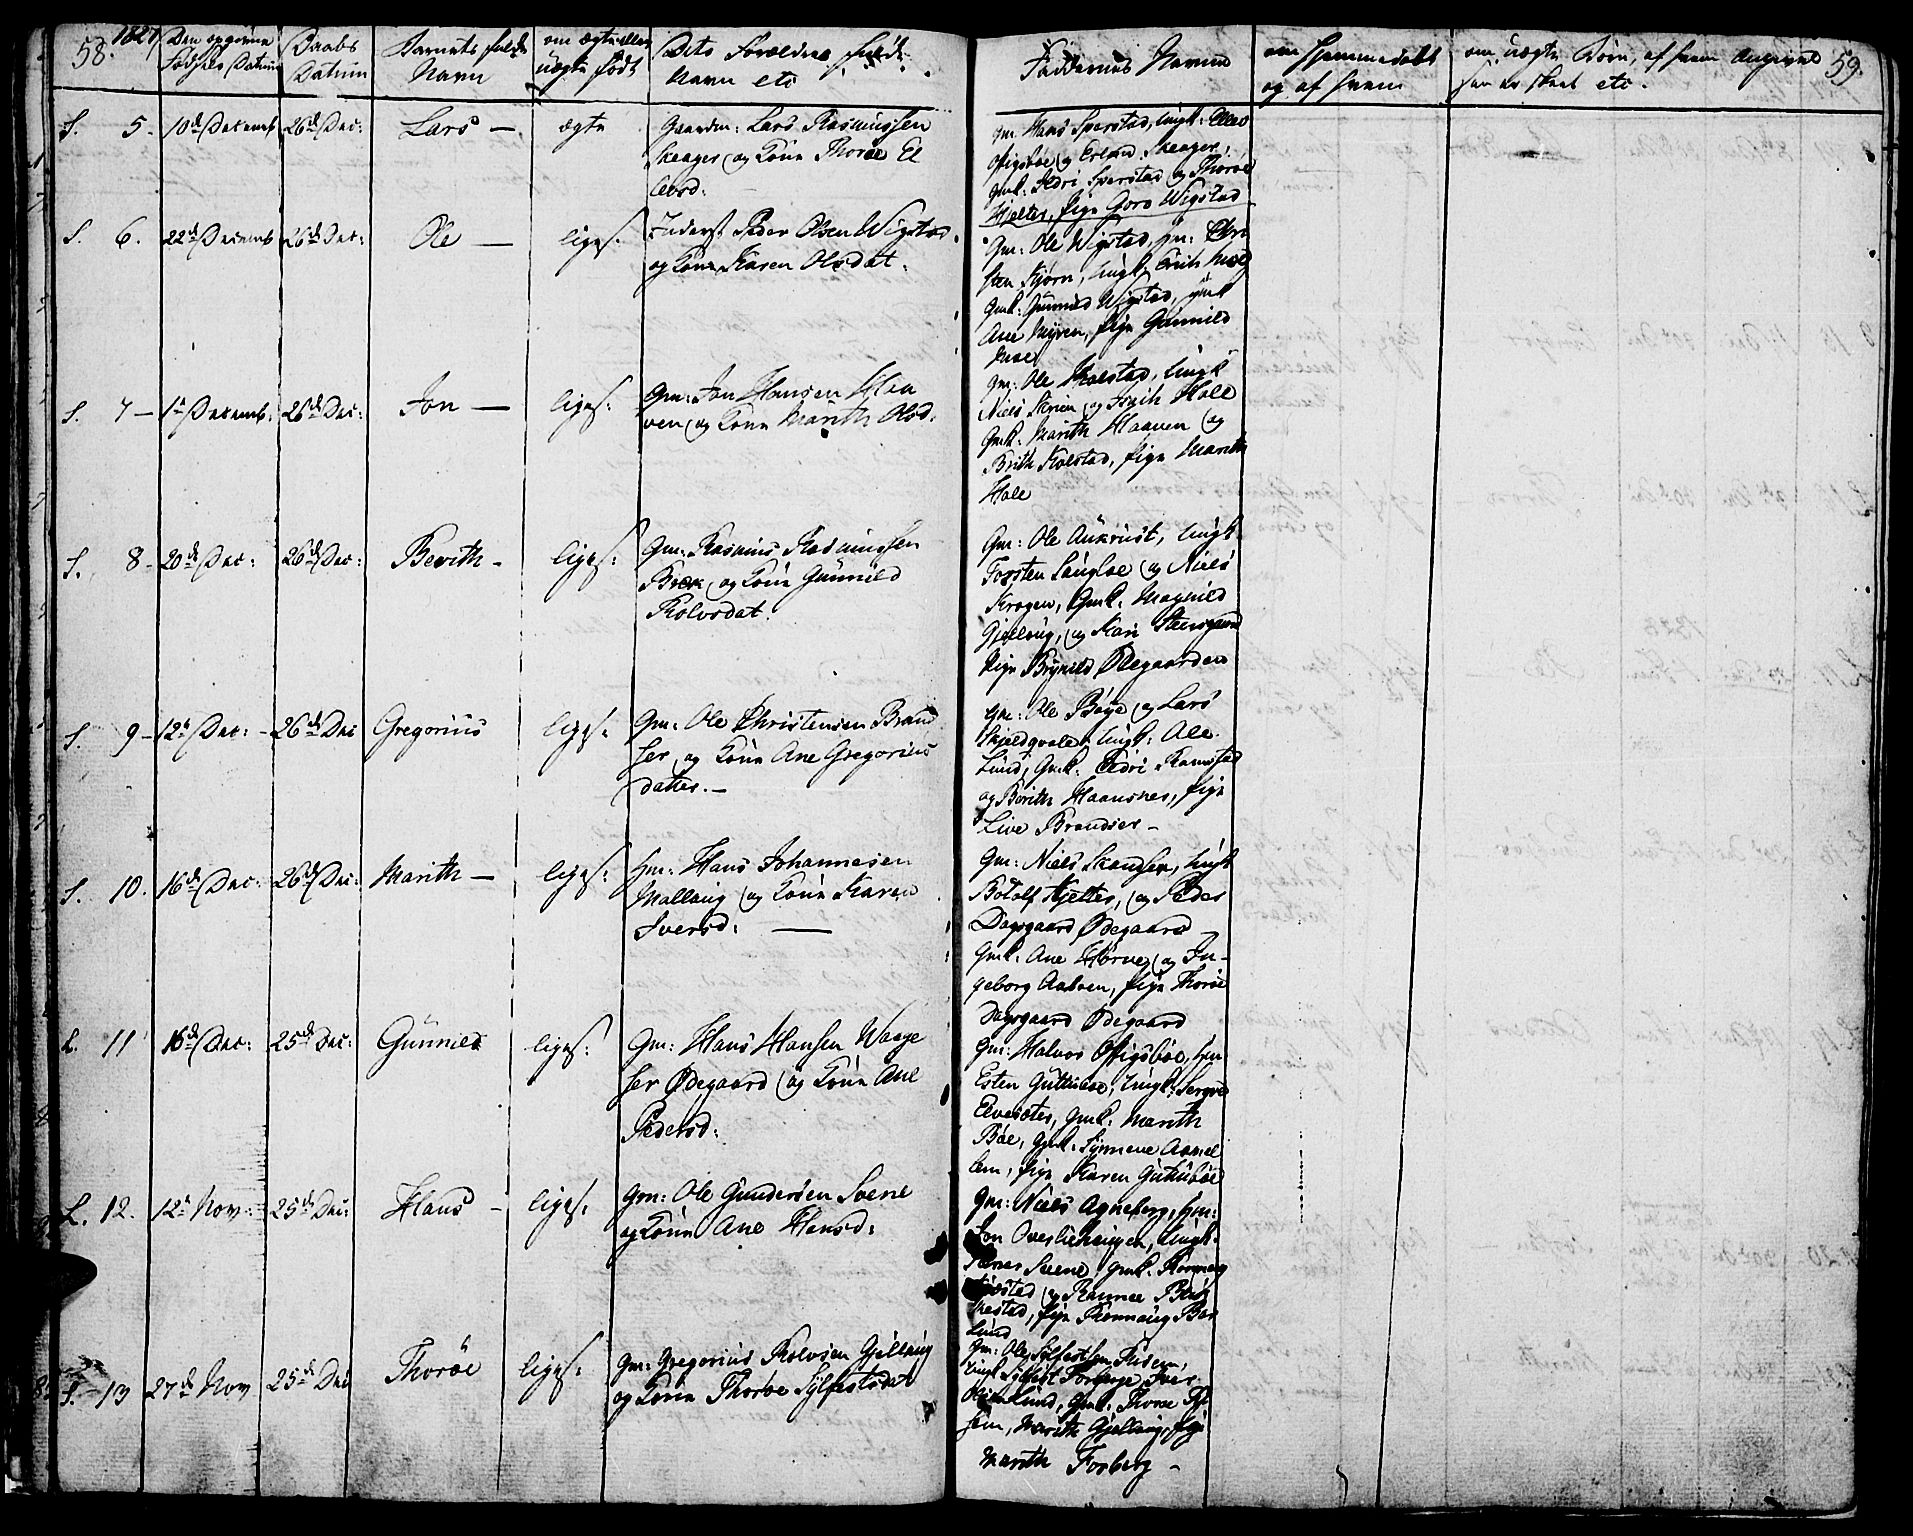 58. 1827
Den opgivne Fødsels Datum
Daabs Datum
Barnets fulde Navn
om ægte eller uægte født
Dets Forældres fulde Navn etc
Faddernes Navne
om hjemmedøbt og af hvem
om uægte Børn, af hvem Angivelsen er skeet etc.
59.
S. 5. 10de Decemb 26de Dec: Lars — ægte
Gaardm: Lars Rasmussen
Skeager og Kone Thoroe El
levsd:
Gm: Hans Sperstad, Ungk: Ellev
Ofigsboe og Erland Skeager,
Gmk: Eldri Sperstad og Thoroe
Hjelter, Pige Goro Wigstad
S. 6. 22de Decemb 26de Dec: Ole — liges:
Inderst Peder Olsen Wigstad
og Kone Karen Olsdat.
Gm: Ole Wigstad, hm: Chri
sten Kjørn, Ungk
Gmk: Gunnild Wigstad, gmk
Ane Myren, Pige Gunnild
S. 7 — 1te Decemb. 26de Dec: Jon — liges:
Gm: Jon Hansen Haa
ven og Kone Marith Olsd:
Gm: Ole Kolstad, Ungk
Niels Skrien og Hole
Gmk: Marith Haaven og
Brith Kolstad, Pige Marith
Hole
S. 8 — 20de Dec: 26de Dec: Berith — liges:
Gm: Rasmus Rasmussen
Bræk og Kone Gunnild
Rolvsdat.
Gm: Ole Aukrust, Ungk
Torsten Sangloe og Niels
Krogen, Gmk. Magnild
Gjellaug, og Kari Steensgaard
Pige Brynild Ødegaarden
S. 9 — 12te Dec: — 26de Dec Gregorius liges:
Gm: Ole Christensen Brand
ser og Kone Ane Gregorius
datter. —
Gm: Ole Bøye og Lars
Skjeldqvale, Ungk: Ole
Lund, Gmk. Eldri Ramstad
og Berith Haansnes, Pige
Live Brandser —
S. 10. 16de Dec: 26de Dec: Marith — liges:
hm: Hans Johannesen
Mallaug og Kone Karen
Iversd: —
Gm: Niels Skandser, Ungk
Botolf Hjelter, og Peder
Dagsgaard Ødegaard —
Gmk. Ane Hørve og In-
geborg Aaboen, Pige Thoroe
Dagsgaard Ødegaard
L. 11 16de Dec: 25de Dec: Gunnild liges:
Gm: Hans Hansen Waage
ser Ødegaard og Kone Ane
Pedersd:
Gm: Halvor Ofigsboe, hm
Esten Guttuboe, Ungk:
Elvesæter, Gmk. Marith
Bøe, Gmk. Synneve Aamel
lem, Pige Karen Guttuboe
L. 12. 12te Nov: 25de Dec: Hans — liges:
Gm: Ole Gundersen Svene
og Kone Ane Hansd:
Gm: Niels Agneberg, hm:
Jon Øverlienringen, Ungk.
Svene, gmk. Ronnaug
og Rannei
Pige Ronnaug
Lund
S. 13 27de Nov 25de Dec Thoroe liges:
Gm: Gregorius Rolvsen Gjellaug
og Kone Thoroe Sylfestsdat
Gm: Ole Sylfestsen Risem,
Ungk Sylfest Forberge Iver
Lund, Gmk. Thoroe Ri
sem, Marith Gjellaug, Pige
Marith Forberg —